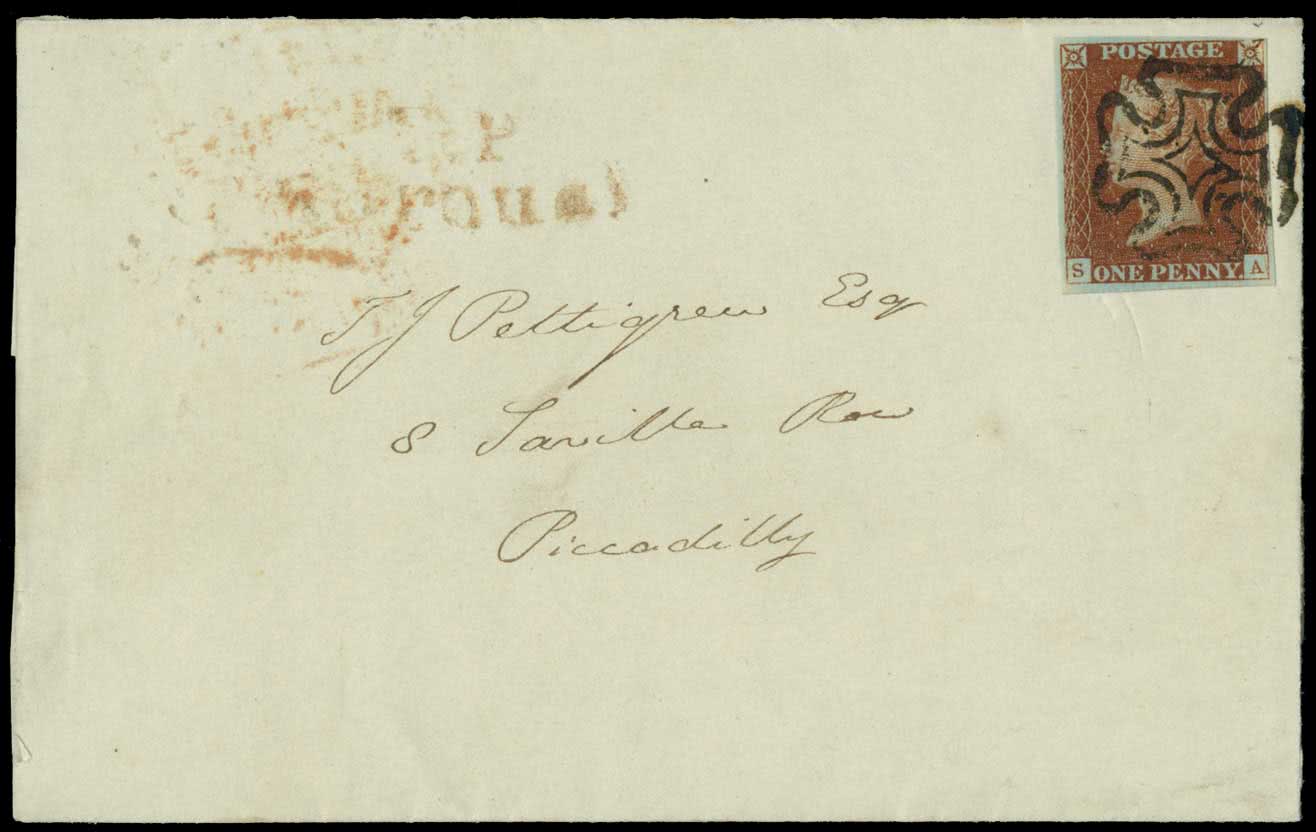 POSTAGE
S ONE PENNY A
T J Pettigrew Esq
8 Saville Row
Piccadilly